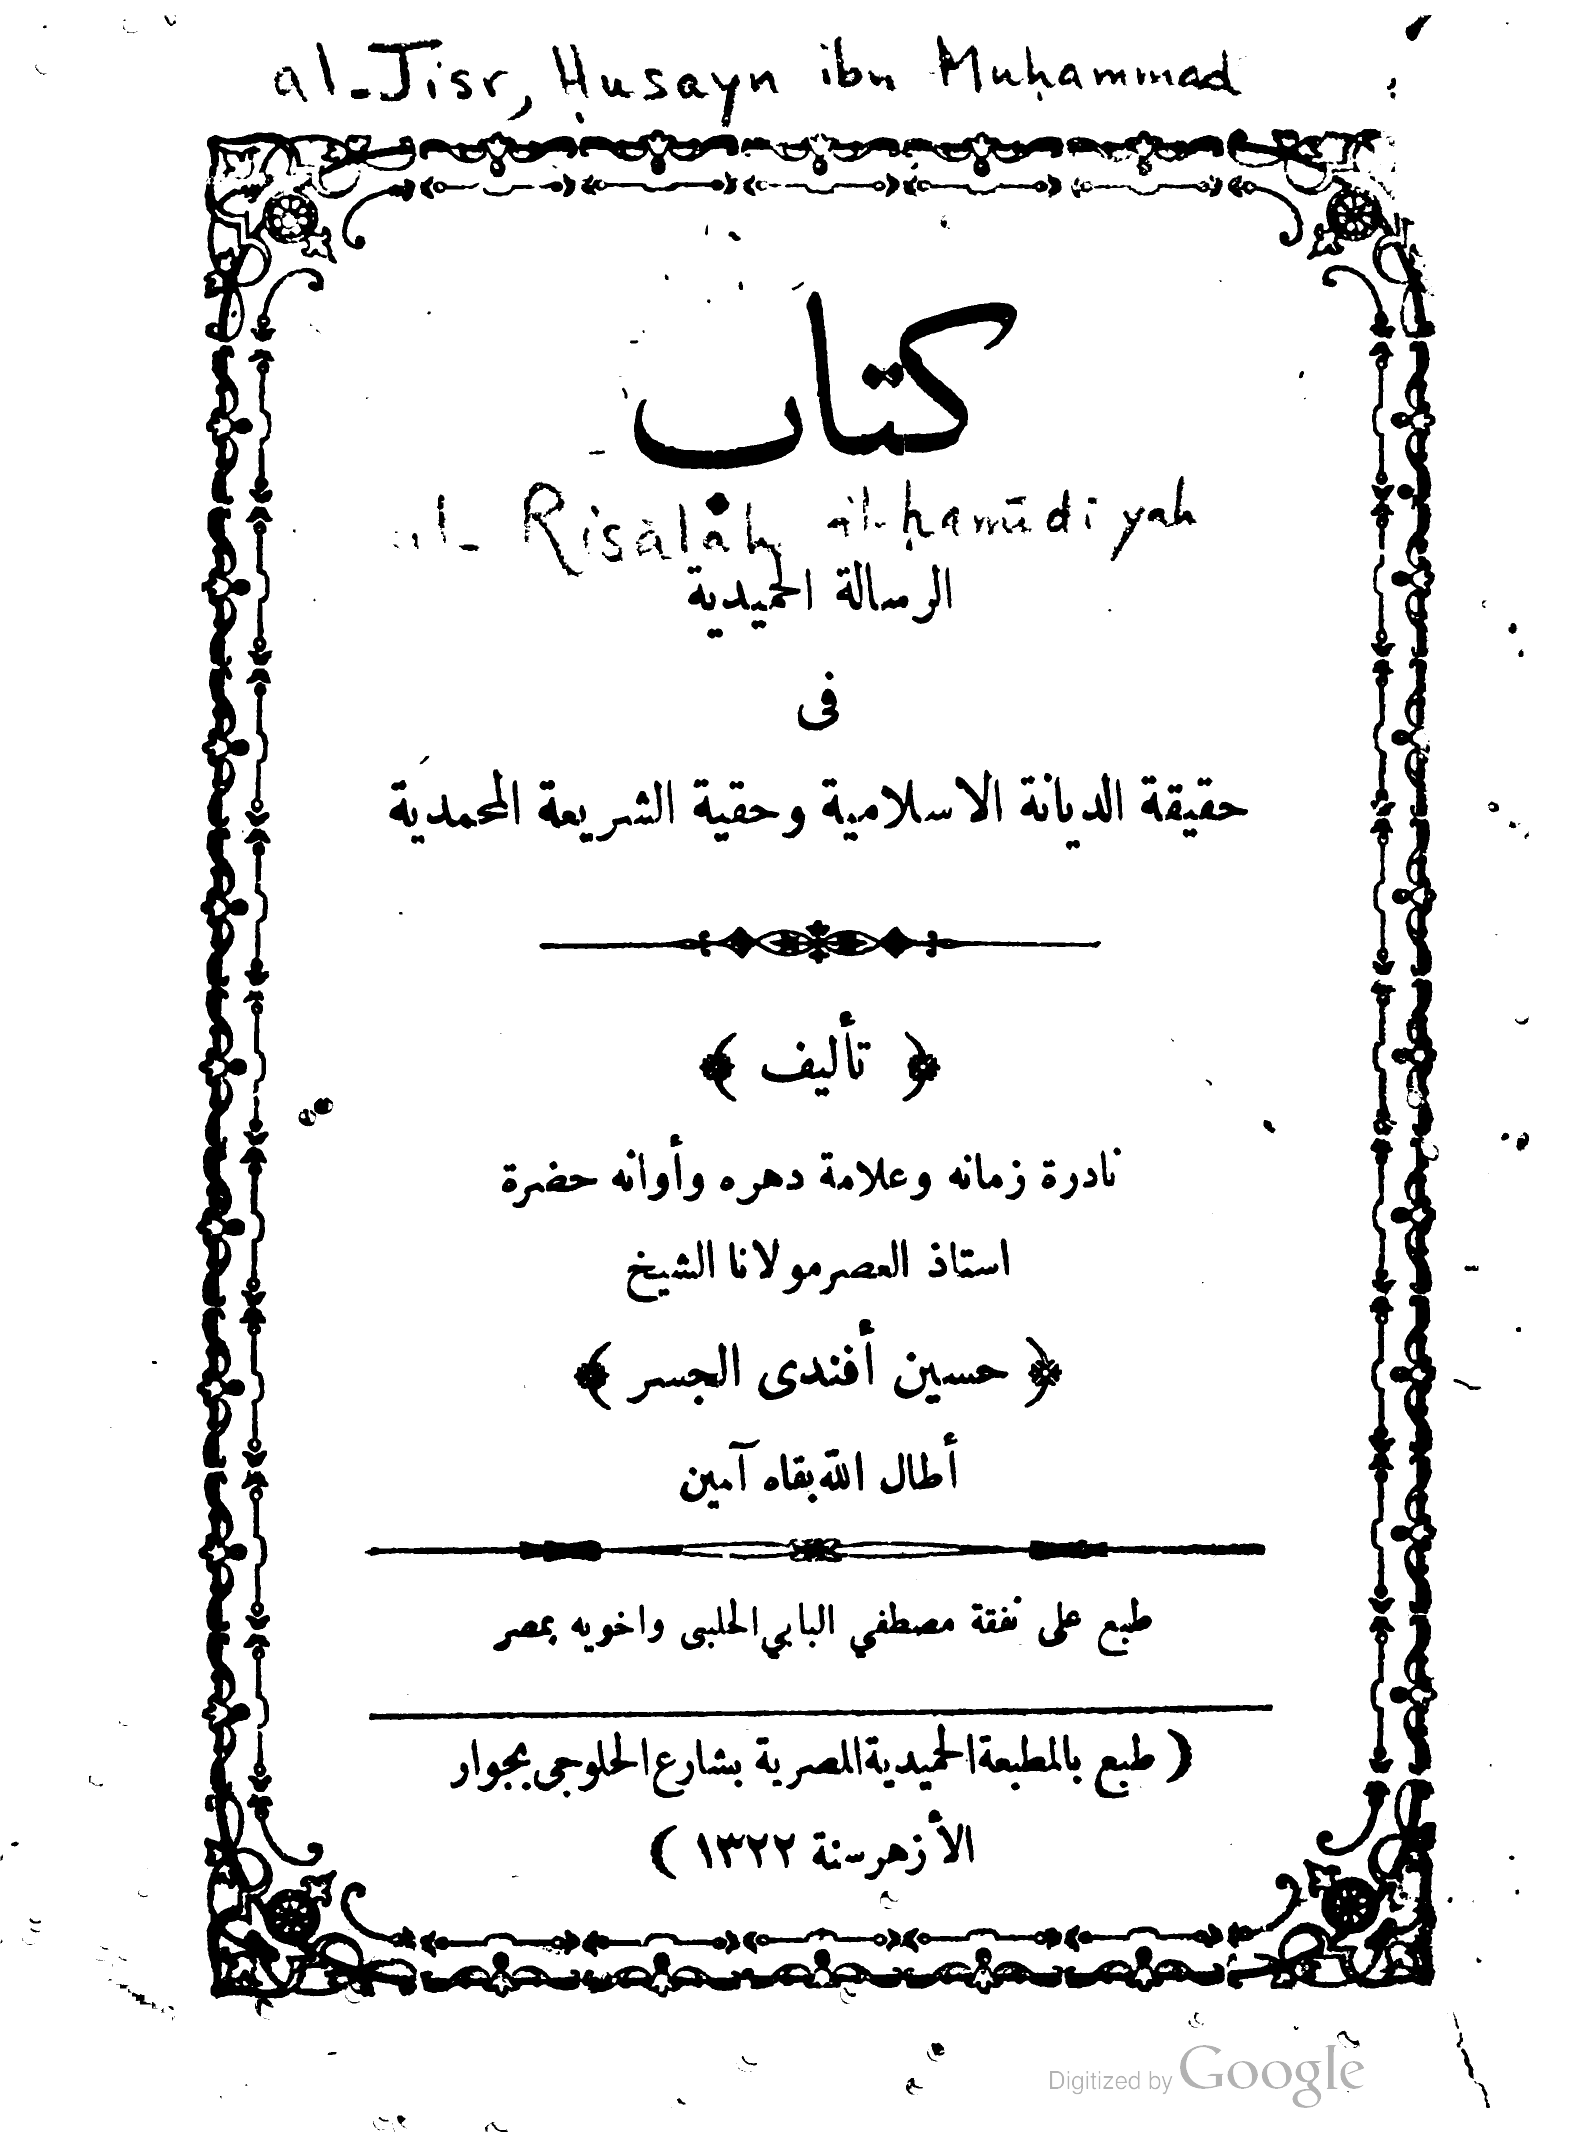 al-Jisr, Ḥusayn ibn Muḥammad
كتاب
al-Risālah al-ḥamīdiyah
الرسالة الحميدية
فى
حقيقة الديانة الاسلامية وحقية الشريعة المحمدية
﴿ تأليف ﴾
نادرة زمانه وعلامة دهره وأوانه حضرة
استاذ العصر مولانا الشيخ
﴿ حسين أفندى الجسر ﴾
أطال الله بقاه آمين
طبع على نفقة مصطفي البابي الحلبى واخويه بمصر
( طبع بالمطبعة الحميدية المصرية بشارع الحلوجى بجوار
الأزهر سنة ١٣٢٢ )
Digitized by Google